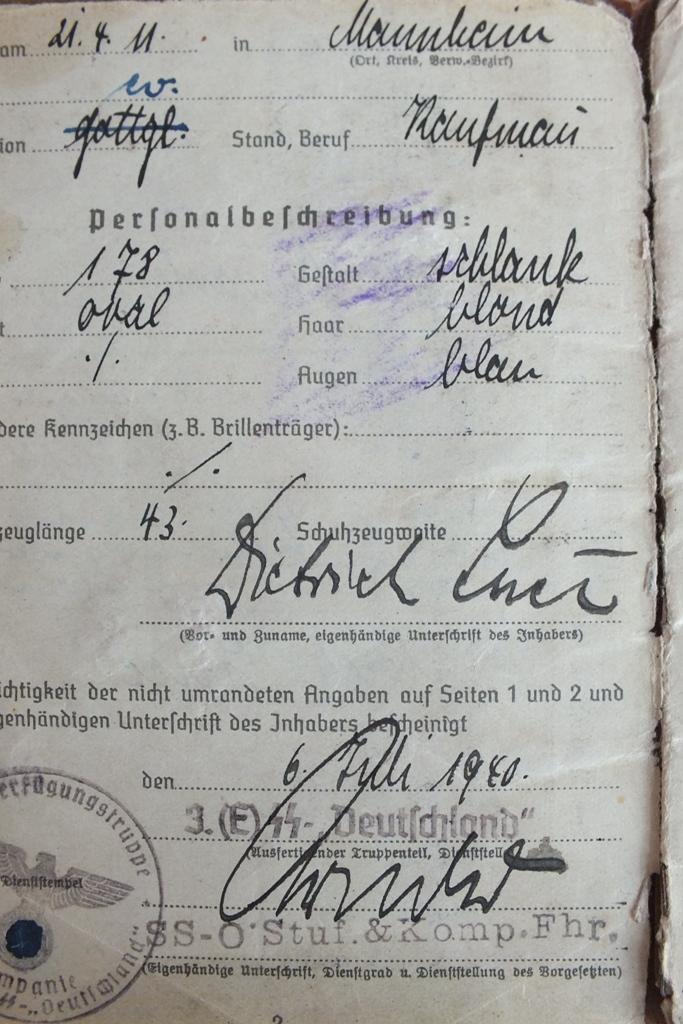 am 21.4.11. in Mannheim
(Ort, Kreis, Verw.=Bezirk)
ev.
ion gottgl. Stand, Beruf Kaufmann
Personalbeschreibung:
178 Gestalt schlank
t oval Haar blond
./. Augen blau
dere Kennzeichen (z.B. Brillenträger):
./.
zeuglänge 43. Schuhzeugweite
Dietrich
(Vor= und Zuname, eigenhändige Unterschrift des Inhabers)
ichtigkeit der nicht umrandeten Angaben auf Seiten 1 und 2 und
genhändigen Unterschrift des Inhabers bescheinigt
den 6. Juli 1940.
3.(E) SS-„Deutschland"
(Ausfertigender Truppenteil, Dienststelle)
SS-O'Stuf.&Komp.Fhr.
(Eigenhändige Unterschrift, Dienstgrad u. Dienststellung des Vorgesetzten)
erfügungstruppe
Dienststempel
mpanie
SS-„Deutschland"
2